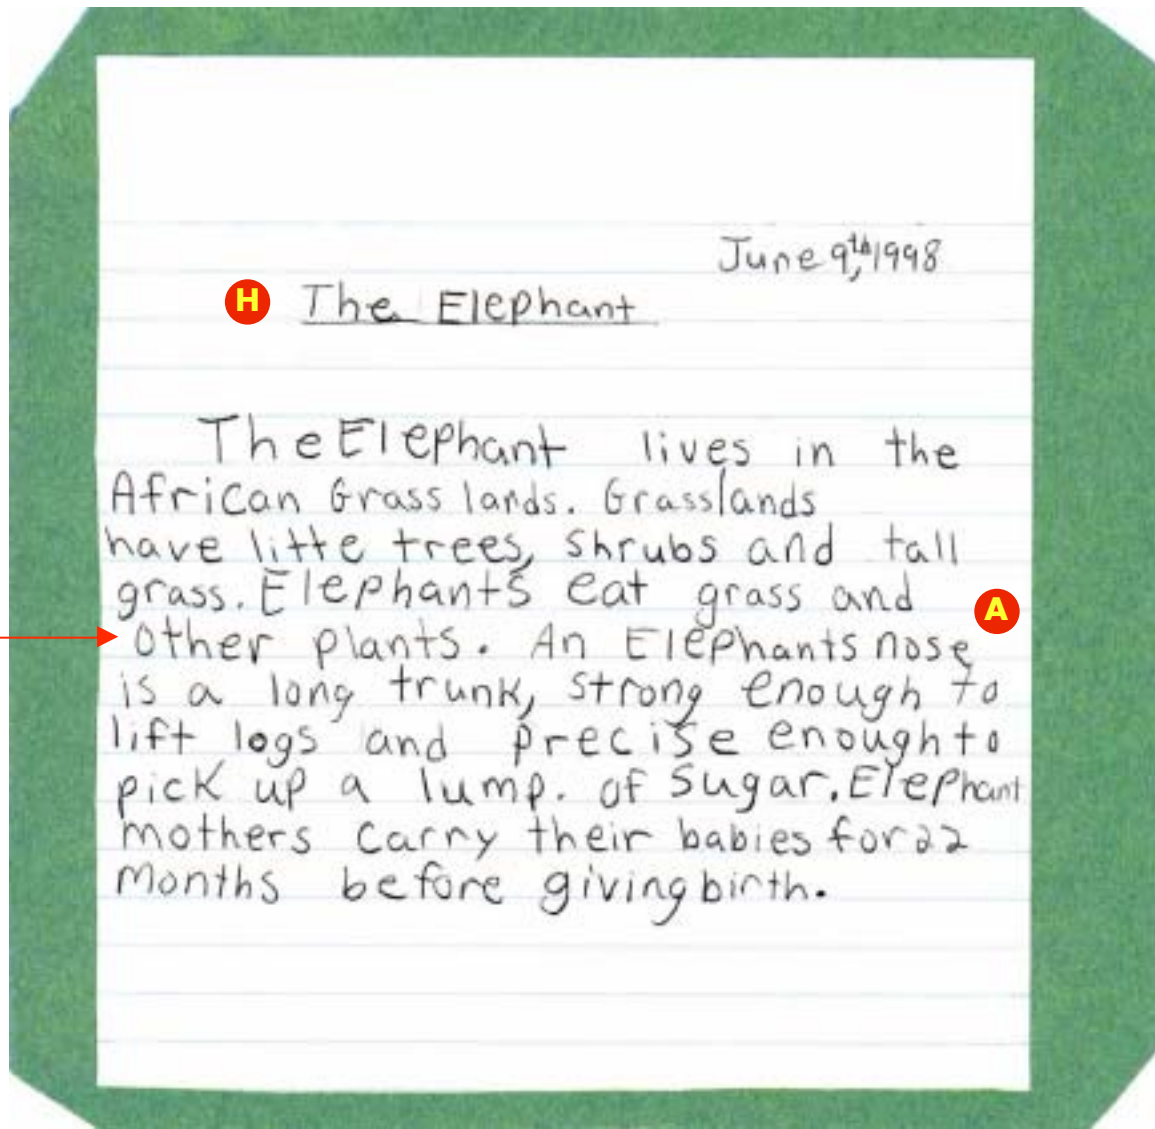 June 9th, 1998
H The Elephant
The Elephant lives in the
African Grass lands. Grasslands
have litte trees, shrubs and tall
grass. Elephants eat grass and
A
other plants. An Elephants nose
is a long trunk, strong enough to
lift logs and precise enough to
pick up a lump. of sugar. Elephant
mothers carry their babies for 22
months before giving birth.